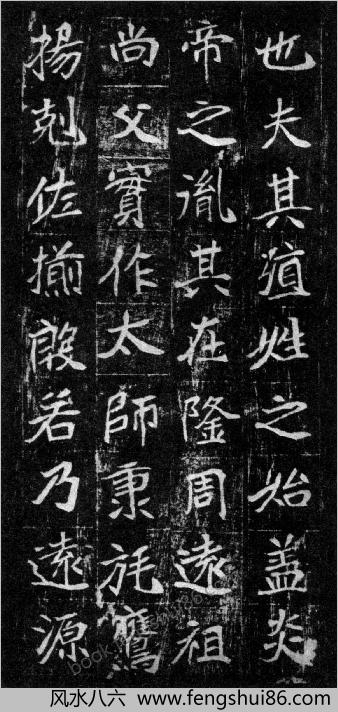 也夫其殖姓之始盖炎
帝之胤其在隆周遠祖
尚父實作太師秉旄鷹
揚剋佐揃殷若乃遠源
风水八六 www.fengshui86.com